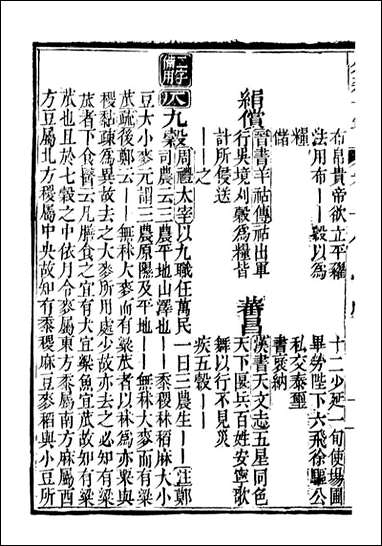 布帛貴帝欲立平糴
法用布——穀以為
糧
儲
絹償
晉書羊祜傳祜出軍
行吳境刈穀為糧皆
計所侵送
——之
十二少延一旬使場圃
畢勞陛下六飛徐驅公
私交泰璽
書褒納
蕃昌
漢書天文志五星同色
天下匽兵百姓安寧歌
舞以行不見災
疾五穀——
三字備用
仄九穀周禮大宰以九職任萬民一曰三農生——注鄭
司農云三農平地山澤也——黍稷秫稻麻大小
豆大小麥元謂三農原隰及平地——無秫大麥而有粱
苽疏後鄭云——無秫大麥而有粱苽者以秫為赤粟與
稷黏疎為異故去之大麥所用處少故亦去之必知有粱
苽者下食醫云凡膳食之宜有犬宜粱魚宜苽故知有粱
苽也且於七穀之中依月令麥屬東方黍屬南方麻屬西
方豆屬北方稷屬中央故知有黍稷麻豆麥稻與小豆所